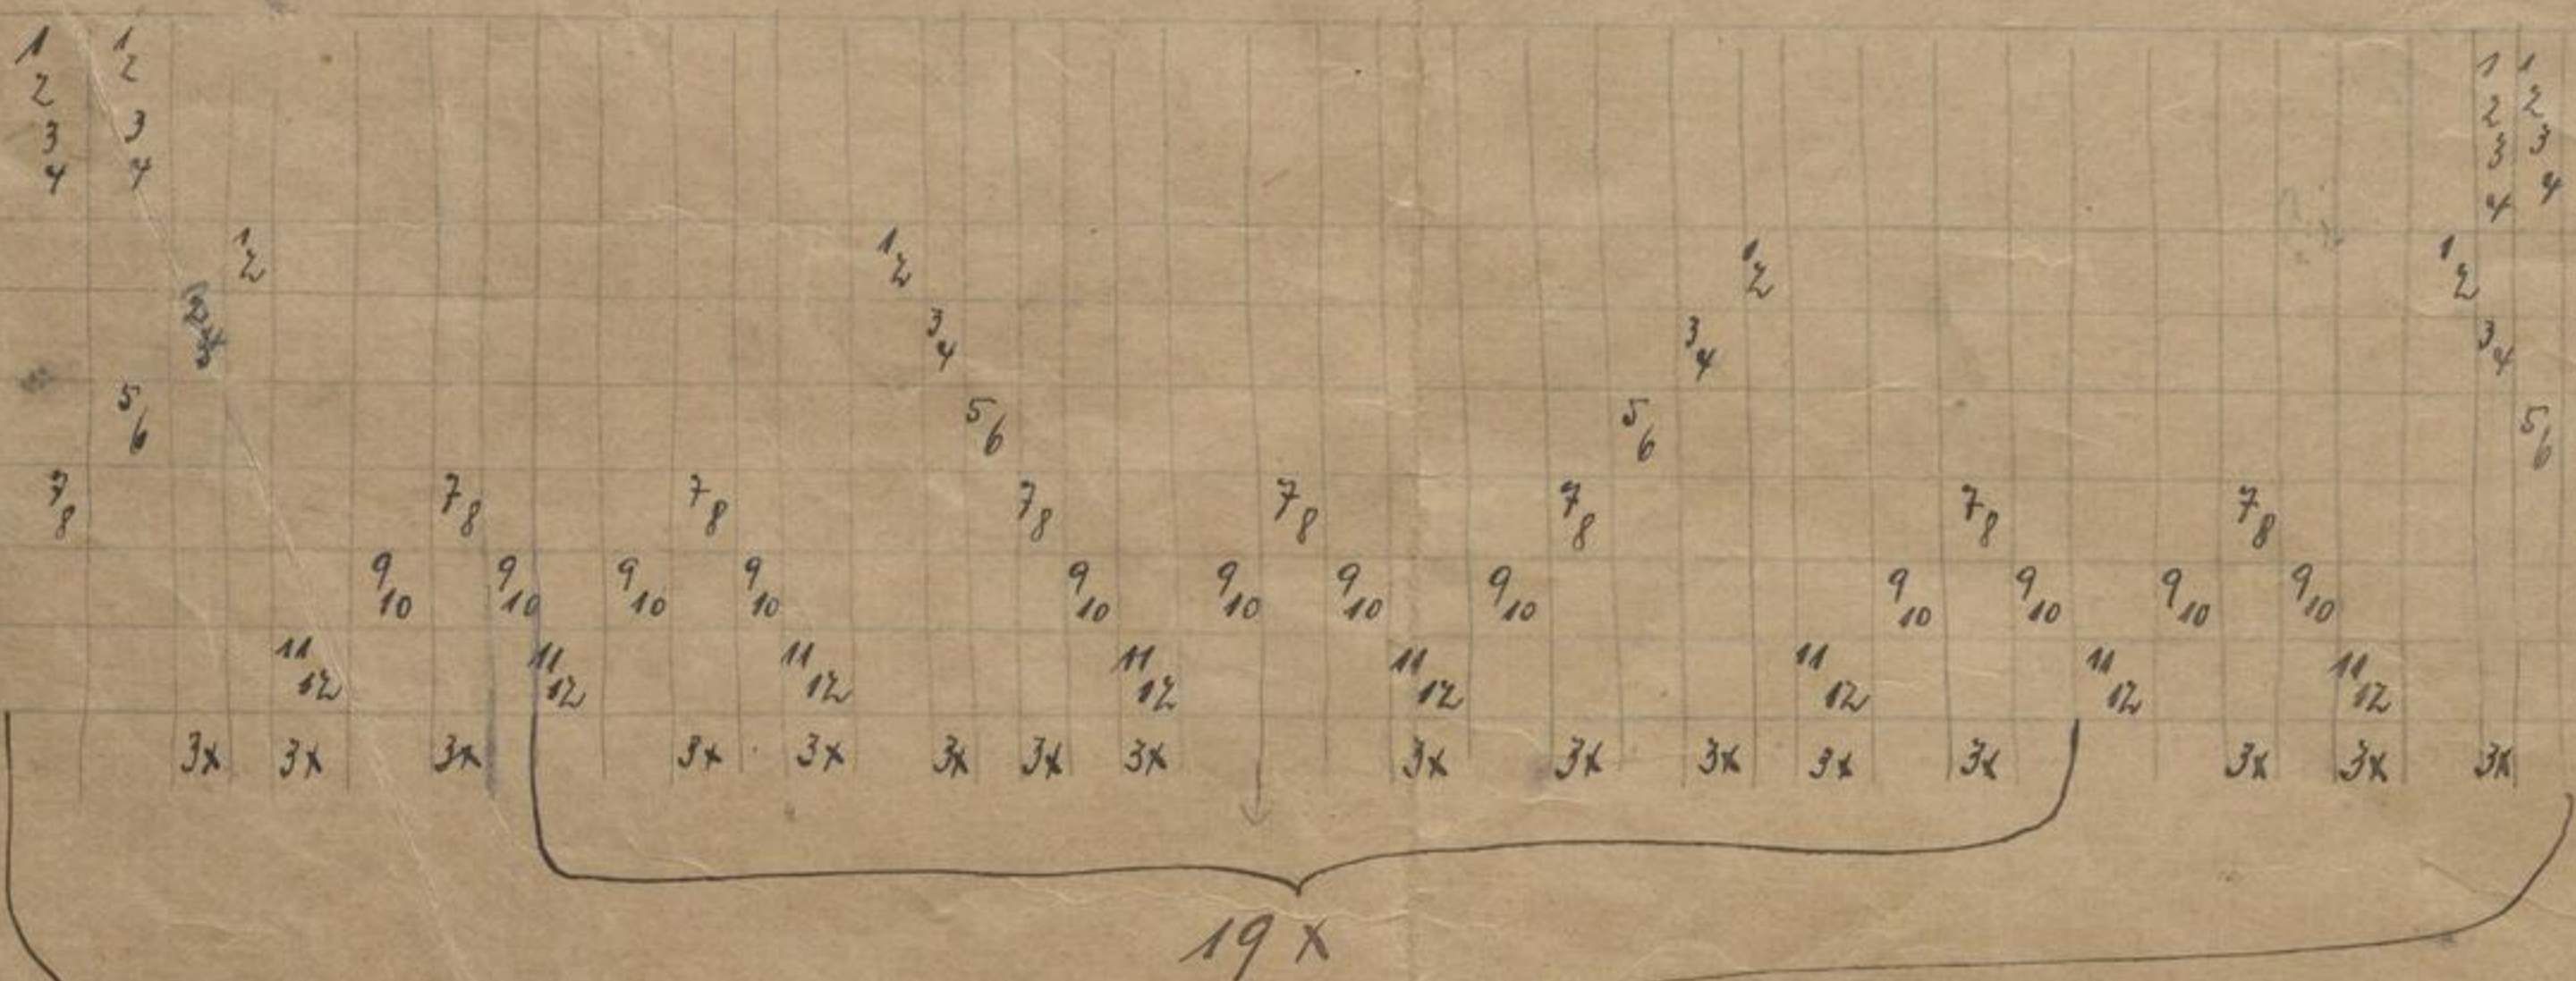 1 1 1 1
2 2 2 2
3 3 3 3
4 4 4 4
1 2 1 2 1 2 1 2
3 4 3 4 3 4
5 6 5 6 5 6 5 6
7 8 7 8 7 8 7 8 7 8 7 8 7 8 7 8
9 10 9 10 9 10 9 10 9 10 9 10 9 10 9 10 9 10 9 10 9 10 9 10
11 12 11 12 11 12 11 12 11 12 11 12 11 12 11 12
3x 3x 3x 3x 3x 3x 3x 3x 3x 3x 3x 3x 3x 3x 3x 3x
19 x